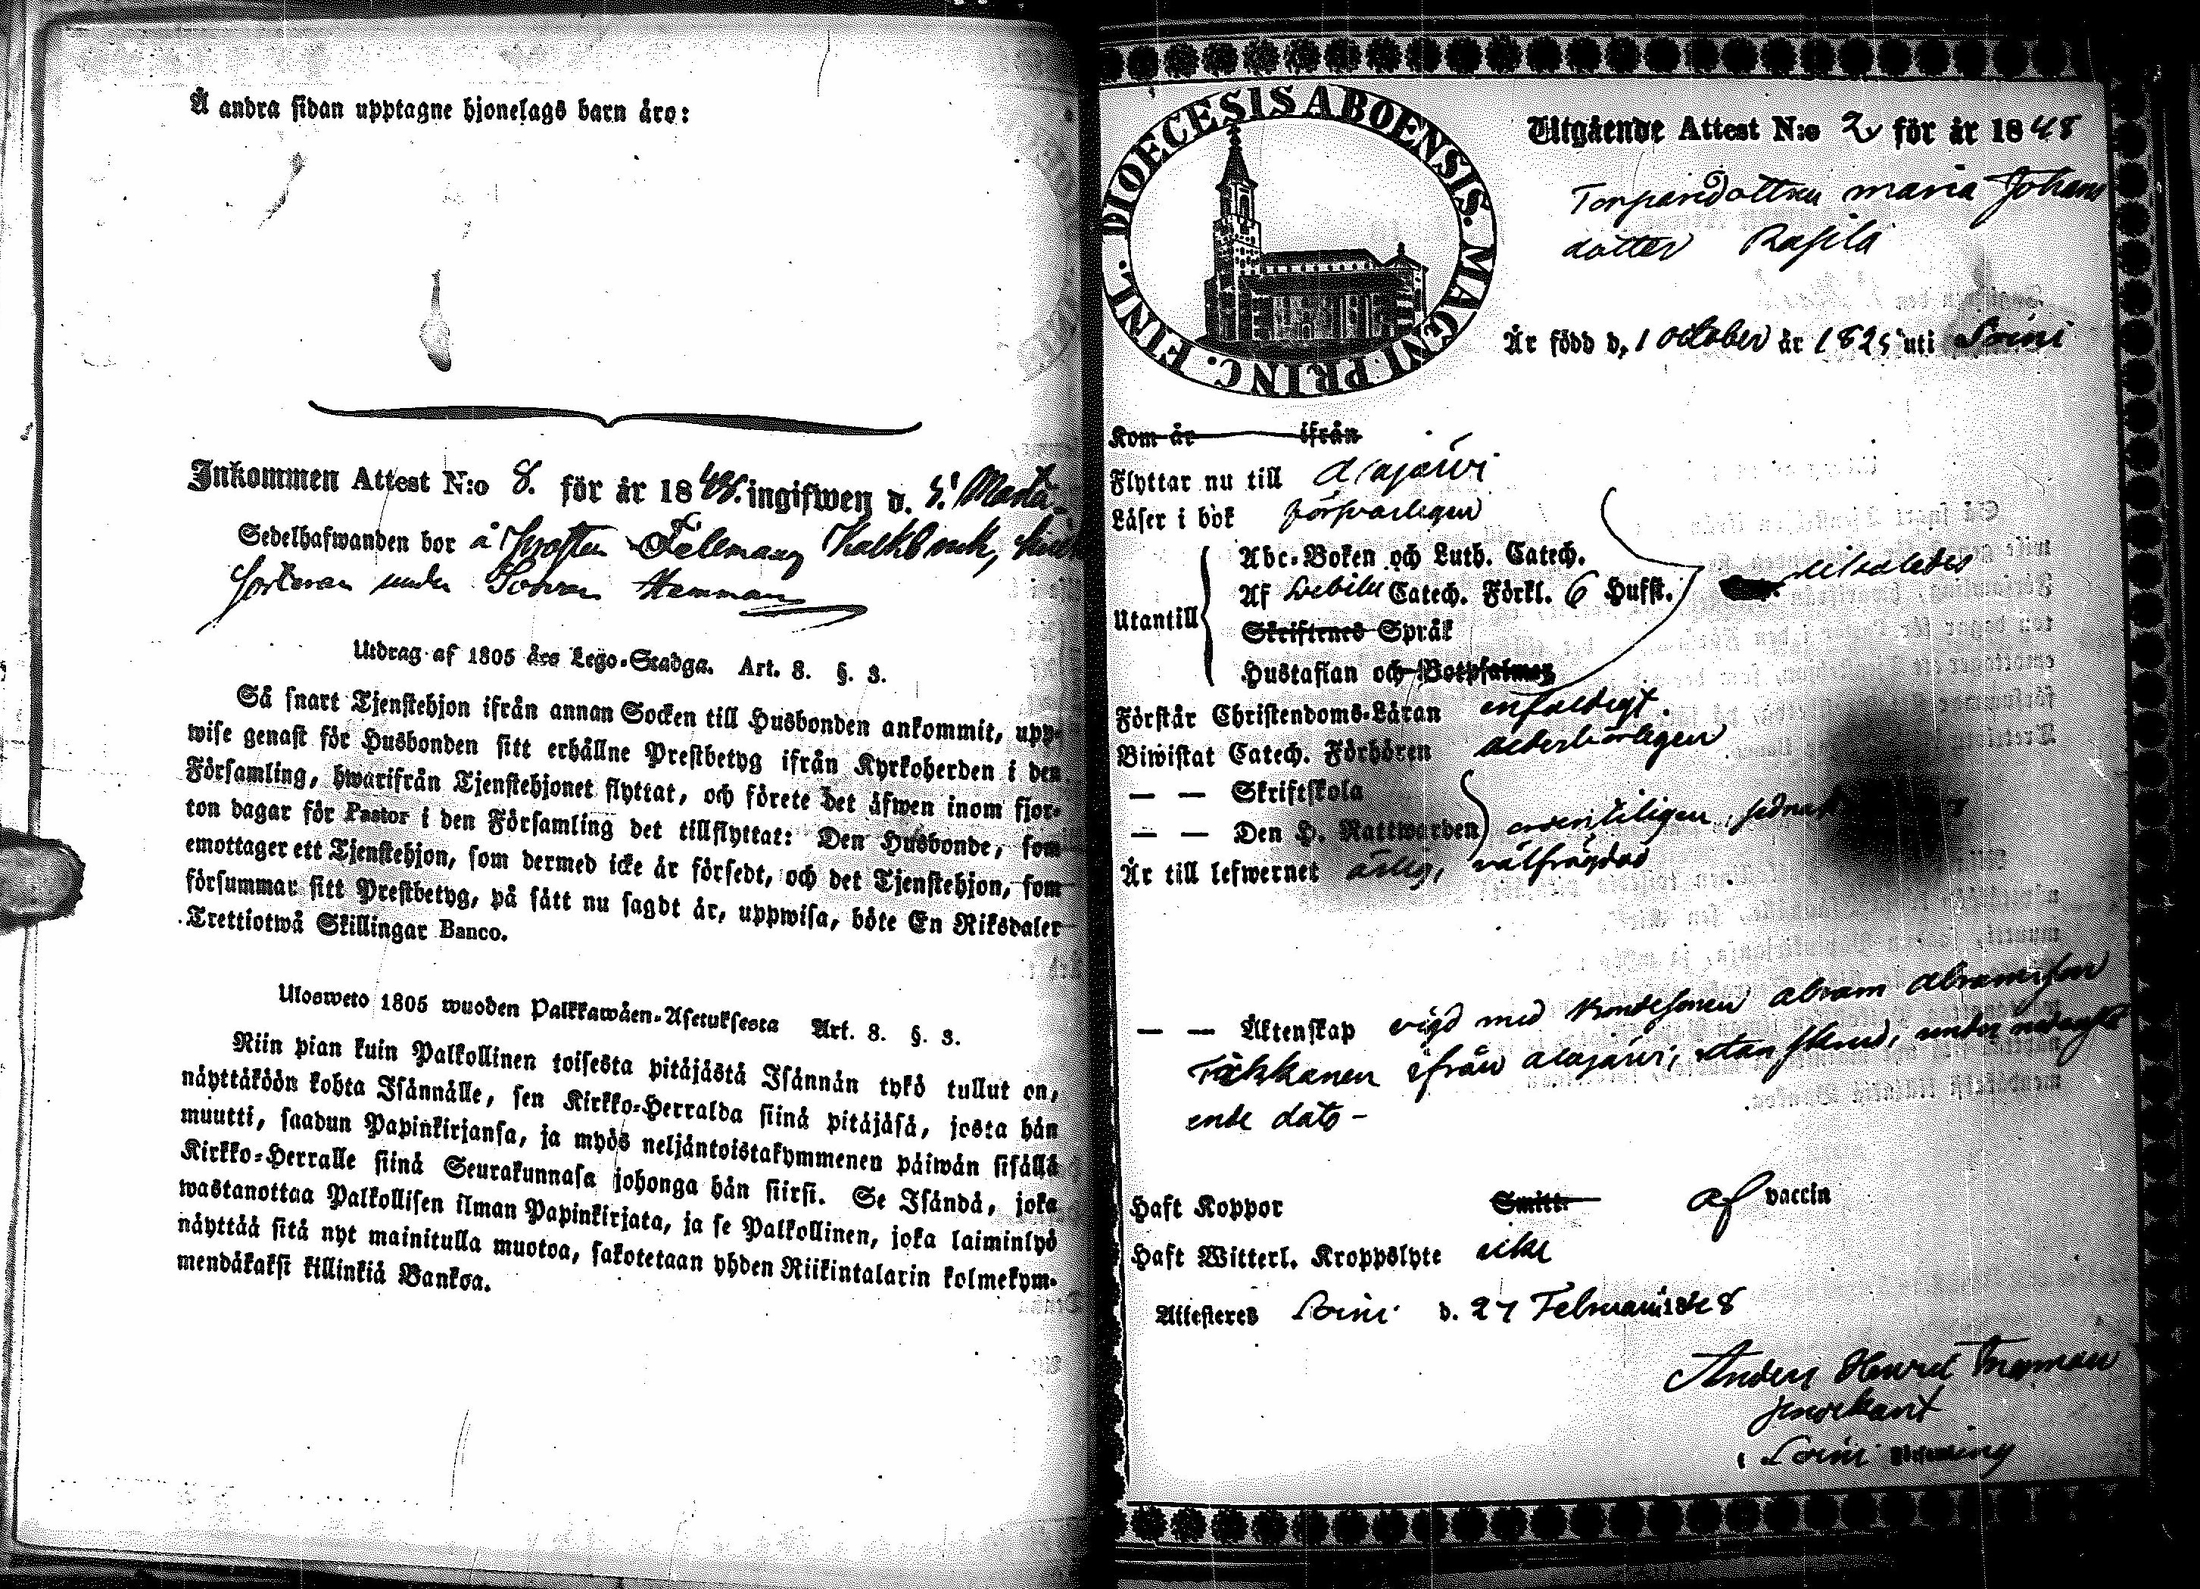 Å andra sidan upptagne hjonelags barn äro:
Inkommen Attest N:o 8. för år 1848. ingifwen d.
Sedelhafwanden bor å
under
Utdrag af 1805 års Lego-Stadga. Art. 8. §. 3.
Så snart Tjenstehjon ifrån annan Socken till Husbonden ankommit, upp-
wise genast för Husbonden sitt erhållne Prestbetyg ifrån Kyrkoherden i den
Församling, hwarifrån Tjenstehjonet flyttat, och förete det äfwen inom fjor-
ton dagar för Pastor i den Församling det tillflyttat: Den Husbonde, som
emottager ett Tjenstehjon, som dermed icke är försedt, och det Tjenstehjon, som
försummar sitt Prestbetyg, på sätt nu sagdt är, uppwisa, böte En Riksdaler
Trettiotwå Skillingar Banco.
Ulosweto 1805 wuoden Palkkawäen-Asetuksesta Art. 8. §. 3.
Niin pian kuin Palkollinen toisesta pitäjästä Isännän tykö tullut on,
näyttäköön kohta Isännälle, sen Kirkko-Herralda siinä pitäjäsä, josta hän
muutti, saadun Papinkirjansa, ja myös neljäntoistakymmenen päiwän sisällä
Kirkko-Herralle siinä Seurakunnasa johonga hän siirsi. Se Isändä, joka
wastanottaa Palkollisen ilman Papinkirjata, ja se Palkollinen, joka laiminlyö
näyttää sitä nyt mainitulla muotoa, sakotetaan yhden Riikintalarin kolmekym-
mendäkaksi killinkiä Bankoa.
DIOECESIS ABOENSIS. MAGNI. PRINC. FINL.
Utgående Attest N:o 2 för år 1848
Torparedottren Maria Johans
dotter Rasila
Är född d. 1 October år 1825 uti Soini
Kom år ifrån
Flyttar nu till Alajärvi
Läser i bok försvarligen
Utantill
Abc-Boken och Luth. Catech.
Af Svebilii Catech. Förkl. 6 Hufst. likaledes
Skriftenes Språk
Hustaflan och Botpsalmer
Förstår Christendoms-Läran enfaldigt.
Biwistat Catech. Förhören behörligen
— — Skriftskola
— — Den H. Nattwarden ordentligen,
Är till lefwernet ärlig, välfrägdad
— — Äktenskap vigd med Bondesonen Abram Abramsson
Takkanen ifrån Alajärvi, utan skrud, under
ende dato –
Haft Koppor Smitt: af vaccin
Haft Witterl. Kroppslyte icke
Attesteres Soini d. 27 Februari 1848
Anders Henric
Soini